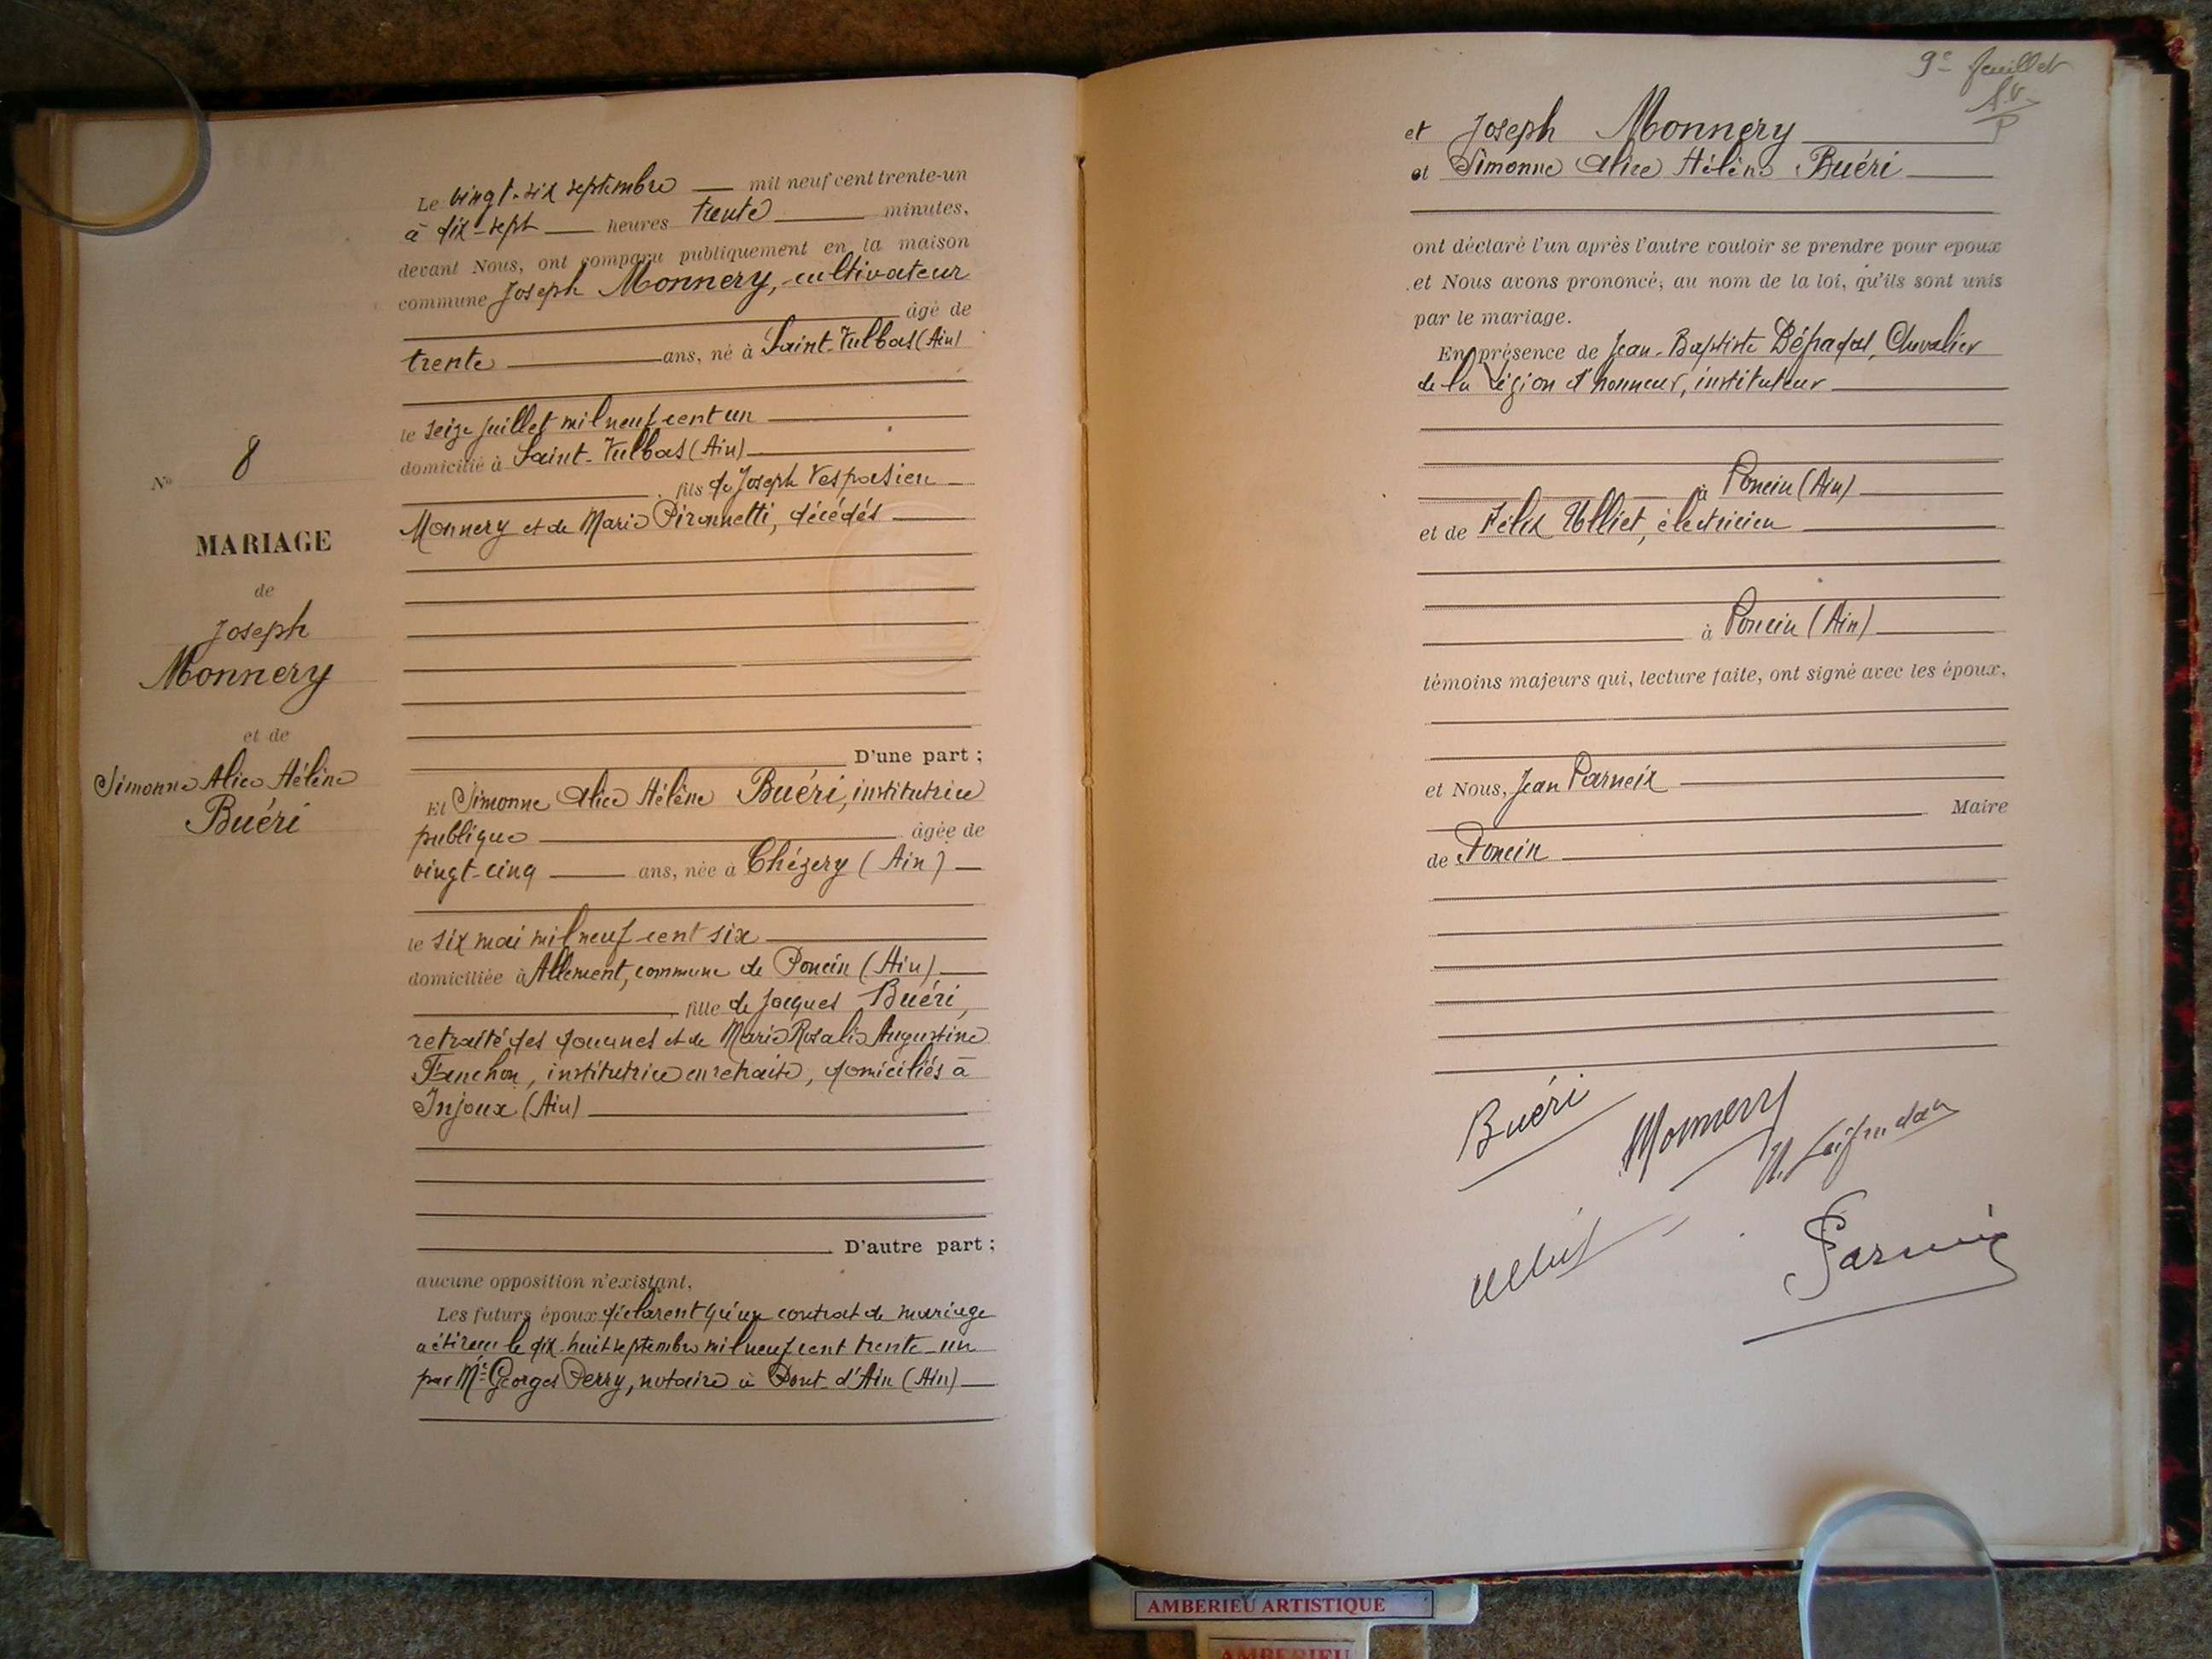 N° 8
MARIAGE
de
Joseph
Monnery
et de
Simonne Alice Hélène
Buéri
Le vingt-six septembre mil neuf cent trente-un
à dix-sept heures trente minutes,
devant Nous, ont comparu publiquement en la maison
commune Joseph Monnery, cultivateur
âgé de
trente ans, né à Saint-Vulbas (Ain)
le seize juillet mil neuf cent un
domicilié à Saint-Vulbas (Ain)
fils de Joseph Vespasien
Monnery et de Marie Pironnetti, décédés
D'une part ;
Et Simonne Alice Hélène Buéri, institutrice
publique âgée de
vingt-cinq ans, née à Chézery (Ain)
le six mai mil neuf cent six
domiciliée à Allement, commune de Poncin (Ain)
fille de Jacques Buéri,
retraité des douanes et de Marie Rosalie Augustine
Fanchon, institutrice en retraite, domiciliés à
Injoux (Ain)
D'autre part ;
aucune opposition n'existant,
Les futurs époux déclarent qu'un contrat de mariage
a été reçu le dix-huit septembre mil neuf cent trente-un
par Me Georges Perry, notaire à Pont-d'Ain (Ain)
9e feuillet
et Joseph Monnery
et Simonne Alice Hélène Buéri
ont déclaré l'un après l'autre vouloir se prendre pour epoux
et Nous avons prononcé, au nom de la loi, qu'ils sont unis
par le mariage.
En présence de Jean-Baptiste Chevalier
de la Légion d'honneur, instituteur
à Poncin (Ain)
et de Félix Ulliet, électricien
à Poncin (Ain)
témoins majeurs qui, lecture faite, ont signé avec les époux,
et Nous, Jean Parneix
Maire
de Poncin
Buéri
Monnery
Ulliet
Parneix
AMBERIEU ARTISTIQUE
AMBERIEU